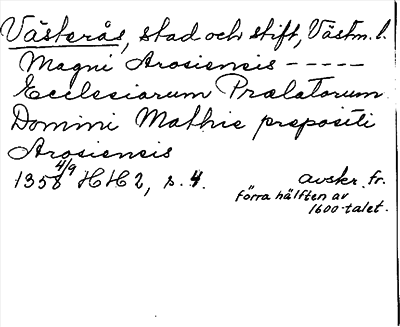 Västerås, stad och stift, Västm. l.
Magni Arosiensis - - - - -
Ecclesiarum Prælatorum
Domini Mathie prepositi
Arosiensis
1358 4/9 HH 2, s. 4. avskr. fr.
förra hälften av
1600-talet.